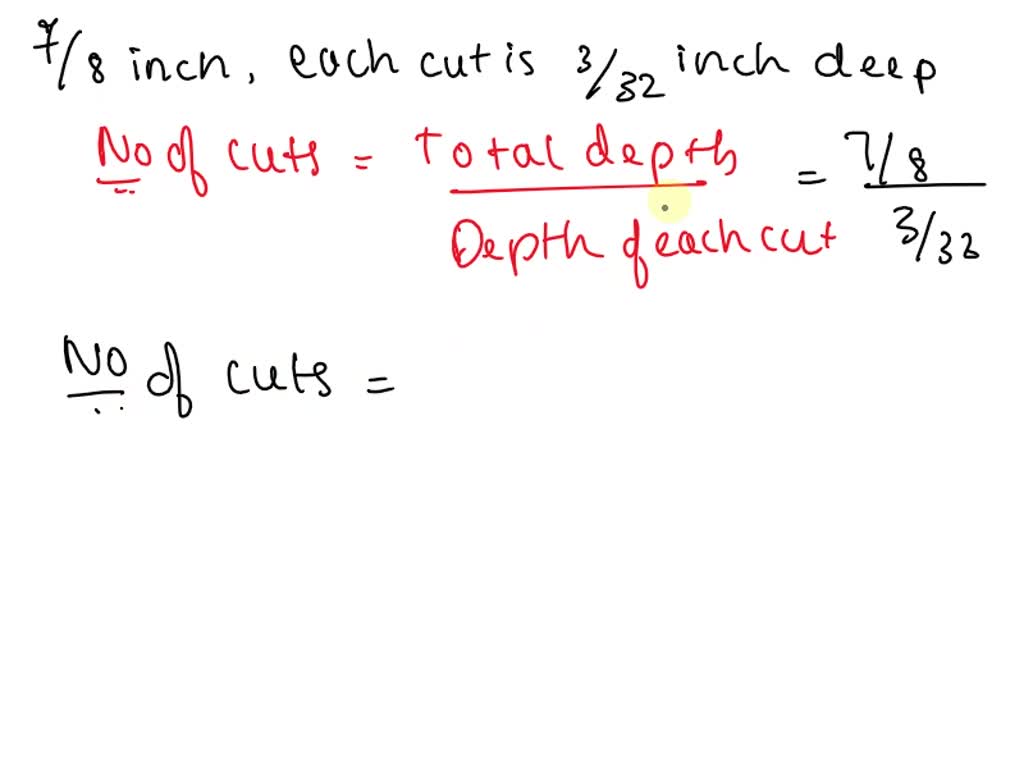 7/8 incn, each cut is 3/32 inch deep
No of cuts = Total depth / Depth of each cut = 7/8 / 3/32
No of cuts =